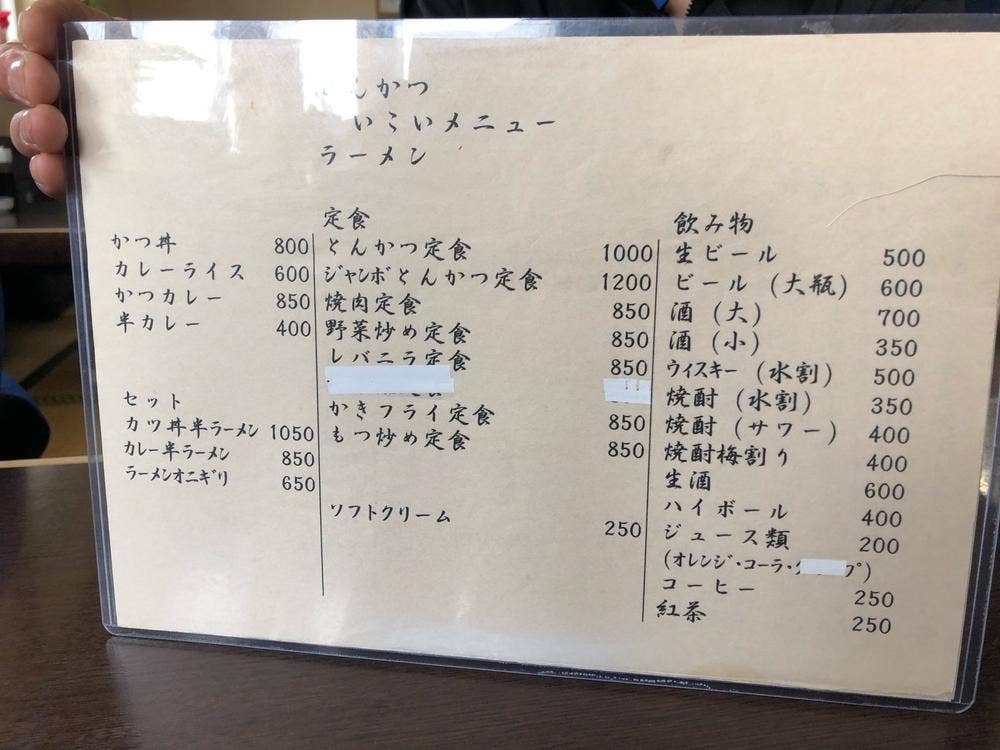 んかつ
いこいメニュー
ラーメン
かつ丼 800
カレーライス 600
かつカレー 850
半カレー 400
セット
カツ丼半ラーメン 1050
カレー半ラーメン 850
ラーメンオニギリ 650
定食
とんかつ定食 1000
ジャンボとんかつ定食 1200
焼肉定食 850
野菜炒め定食 850
レバニラ定食 850
かきフライ定食 850
もつ炒め定食 850
ソフトクリーム 250
飲み物
生ビール 500
ビール(大瓶) 600
酒(大) 700
酒(小) 350
ウィスキー(水割) 500
焼酎(水割) 350
焼酎(サワー) 400
焼酎梅割り 400
生酒 600
ハイボール 400
ジュース類 200
(オレンジ・コーラ・
コーヒー 250
紅茶 250